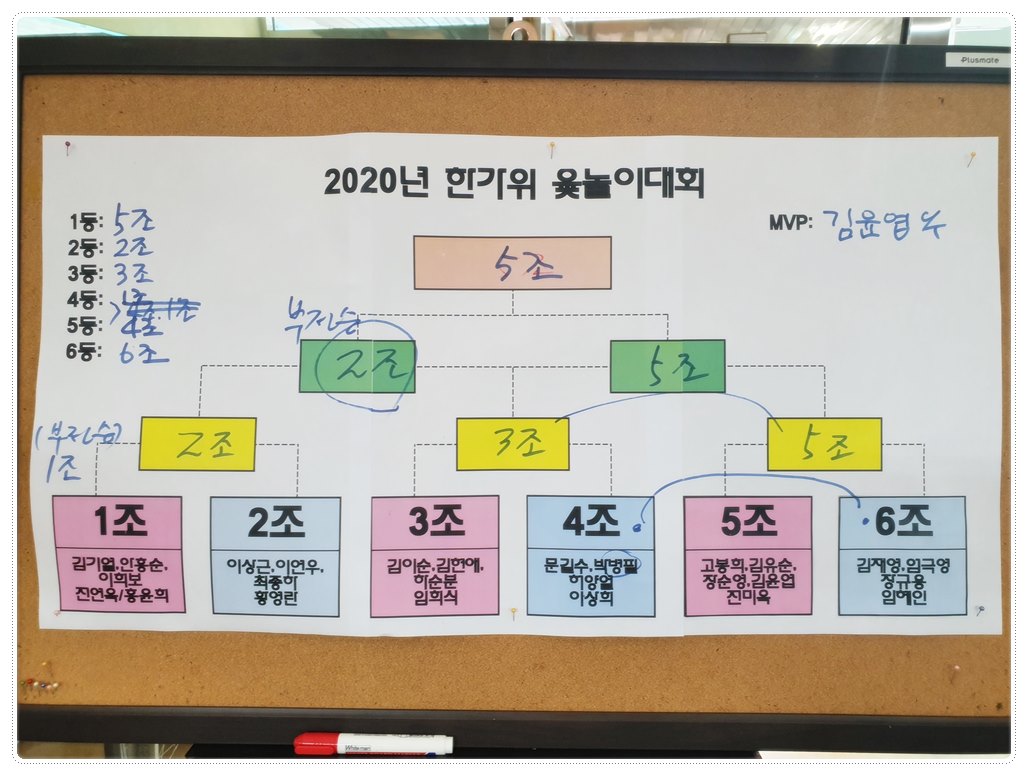 Plusmate
2020년 한가위 윷놀이대회
1등: 5조
2등: 2조
3등: 3조
4등:
5등: 4조
6등: 6조
MVP: 김윤엽
5조
부전승
2조
5조
(부전승)
1조
2조
3조
5조
1조
김기열,안홍순,
이희보
진언옥/홍윤희
2조
이상근,이연우,
최종하
황영란
3조
김이순,김현애,
허순분
임희식
4조
문길수,박병필
허양열
이상희
5조
고봉희,김유순,
장순영,김윤엽
진미옥
6조
김재영,엄극영
장규용
임혜인